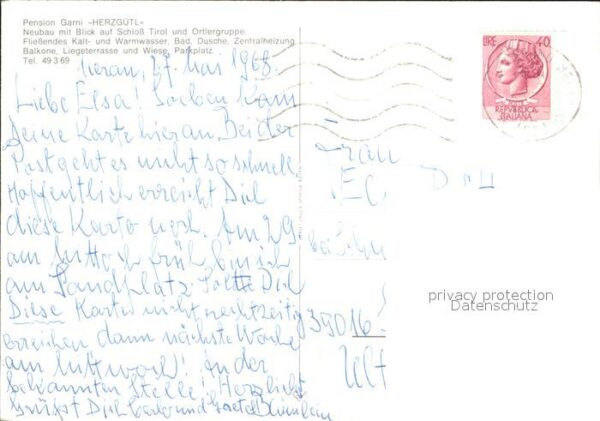 Pension Garni «HERZGÜTL»
Neubau mit Blick auf Schloß Tirol und Ortlergruppe.
Fließendes Kalt- und Warmwasser, Bad, Dusche, Zentralheizung,
Balkone, Liegeterrasse und Wiese, Parkplatz
Tel. 49 3 69
Meran, 27. Mai 1968.
Liebe Elsa! Soeben kam
Deine Karte hier an. Bei der
Post geht es nicht so schnell
Hoffentlich erreicht Dich
diese Karte noch. Am 29
am Mittwoch früh bin ich
am Sandplatz. Sollte Dich
Diese Karte nicht rechtzeitig
erreichen dann nächste Woche
am Mittwoch! An der
bekannten Stelle! Herzlichst
Grüßt Dich und
LIRE 40
REPVBBLICA
ITALIANA
Frau
39016
privacy protection
Datenschutz